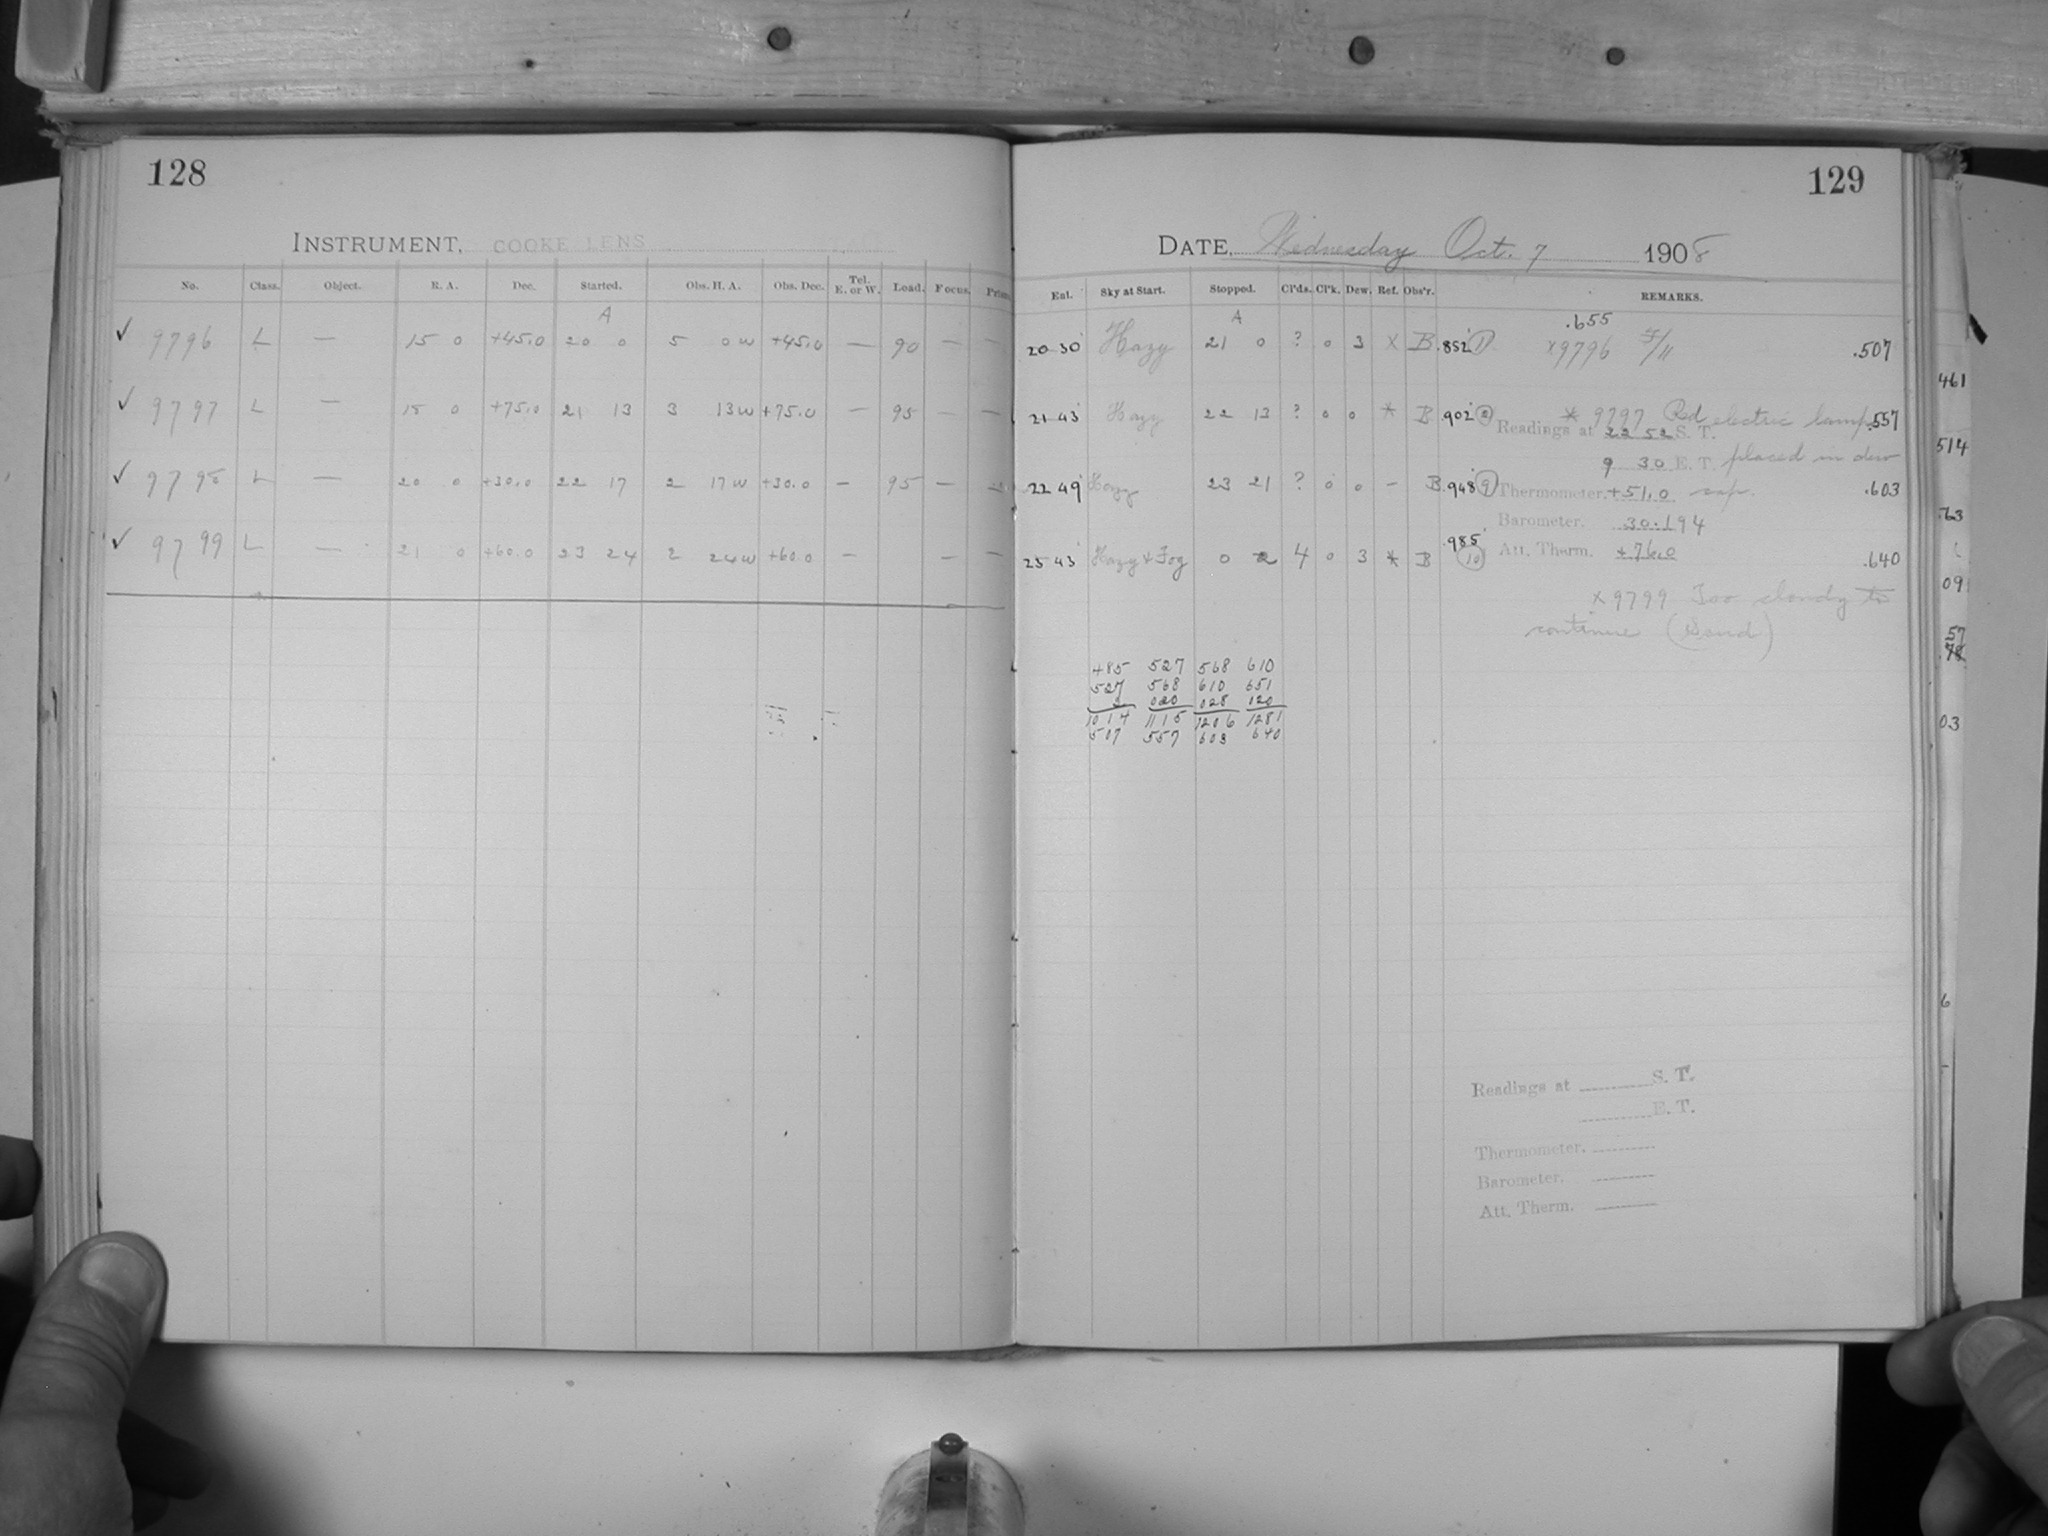 128
129
INSTRUMENT, COOKE LENS
DATE, Wednesday Oct. 7 1908
No. Class. Object. R. A. Dec. Started. Obs. H. A. Obs. Dec. Tel. E. or W. Load. Focus. Prism.
Ent. Sky at Start. Stopped. Cl'ds. Cl'k. Dew. Ref. Obs'r. REMARKS.
A
A
.655
✓ 9796 L — 15 0 +45.0 20 0 5 0 W +45.0 — 90 — —
20 30 Hazy 21 0 ? 0 3 X B .852 x9796 F/11 .507
✓ 9797 L — 18 0 +75.0 21 13 3 13 W +75.0 — 95 — —
21 43 Hazy 22 13 ? 0 0 * B .902 * 9797 Red electric lamp .557
Readings at 22 52 S. T.
9 30 E. T. placed in dew
✓ 9798 L — 20 0 +30.0 22 17 2 17 W +30.0 — 95 —
22 49 Hazy 23 21 ? 0 0 — B .948 9 Thermometer. +51.0 cap. .603
Barometer. 30.194
✓ 9799 L — 21 0 +60.0 23 24 2 24 W +60.0 — — —
23 43 Hazy + Fog 0 2 4 0 3 * B .985 10 Att. Therm. +76.0 .640
x 9799 Too cloudy to
continue (Send)
485 527 568 610
527 568 610 651
2 020 028 020
1014 1115 1206 1281
507 557 603 640
Readings at S. T.
E. T.
Thermometer.
Barometer.
Att. Therm.
461
514
63
09
57
78
03
6